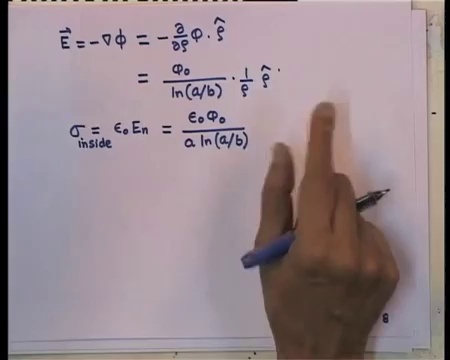 E⃗ = -∇ϕ = - ∂/∂ρ φ · ρ̂
= φ₀ / ln(a/b) · 1/ρ ρ̂
σ inside = ϵ₀ Eₙ = ϵ₀φ₀ / a ln(a/b)
8